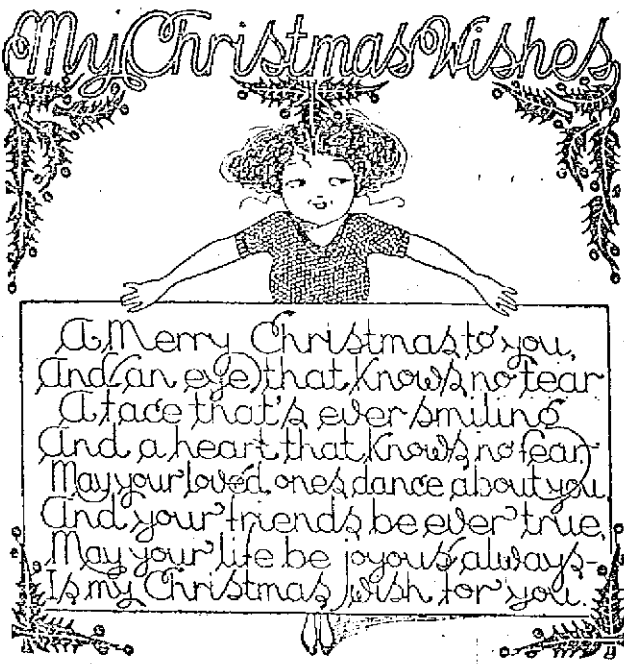 My Christmas Wishes
A Merry Christmas to you,
And (an eye) that knows no tear
A face that's ever smiling
And a heart that knows no fear-
May your loved ones dance about you
And your friends be ever true,
May your life be joyous always-
Is my Christmas wish for you.